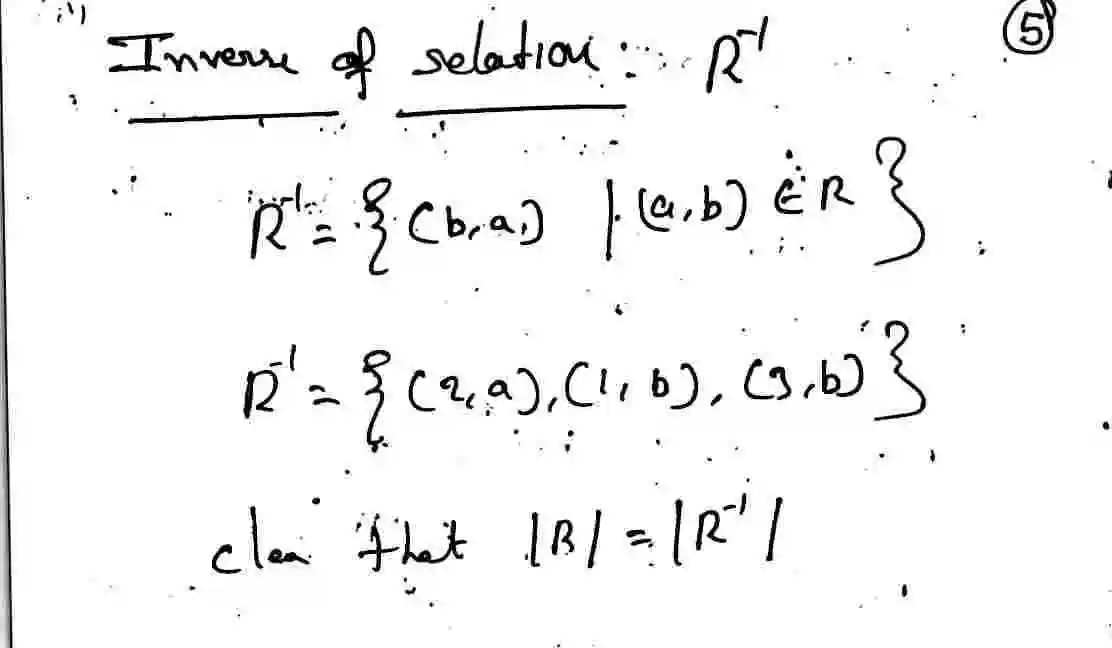 Inverse of relation : R⁻¹ ⑤
R⁻¹ = { (b,a) | (a,b) ∈ R }
R⁻¹ = { (2,a), (1,b), (3,b) }
clear that |R| = |R⁻¹|